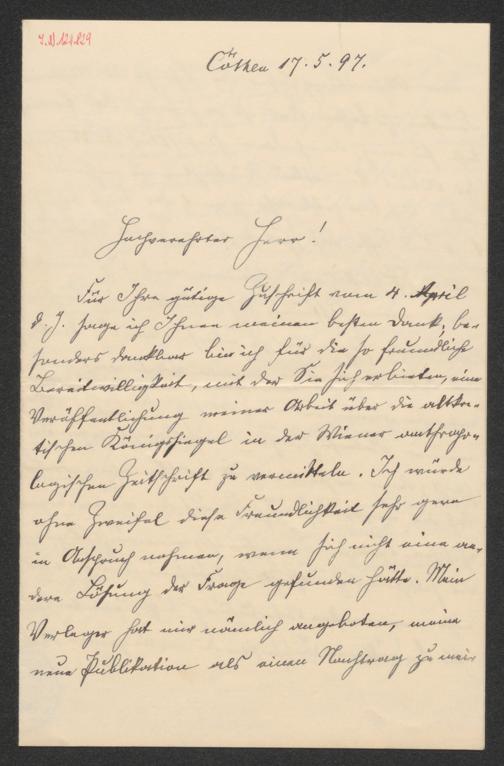 I.N 121.829
Cöthen 17.5.97.
Hochverehrter Herr!
Für Ihre gütige Zuschrift vom 4. April
d. J. sage ich Ihnen meinen besten Dank; be-
sonders dankbar bin ich für die so freundliche
Bereitwilligkeit, mit der Sie sich erbieten, eine
Veröffentlichung meiner Arbeit über die altkre-
tischen Königssiegel in der Wiener anthropo-
logischen Zeitschrift zu vermitteln. Ich würde
ohne Zweifel diese Freundlichkeit sehr gern
in Anspruch nehmen, wenn sich nicht eine an-
dere Lösung der Frage gefunden hätte. Mein
Verleger hat mir nämlich angeboten, meine
neue Publikation als einen Nachtrag zu mein